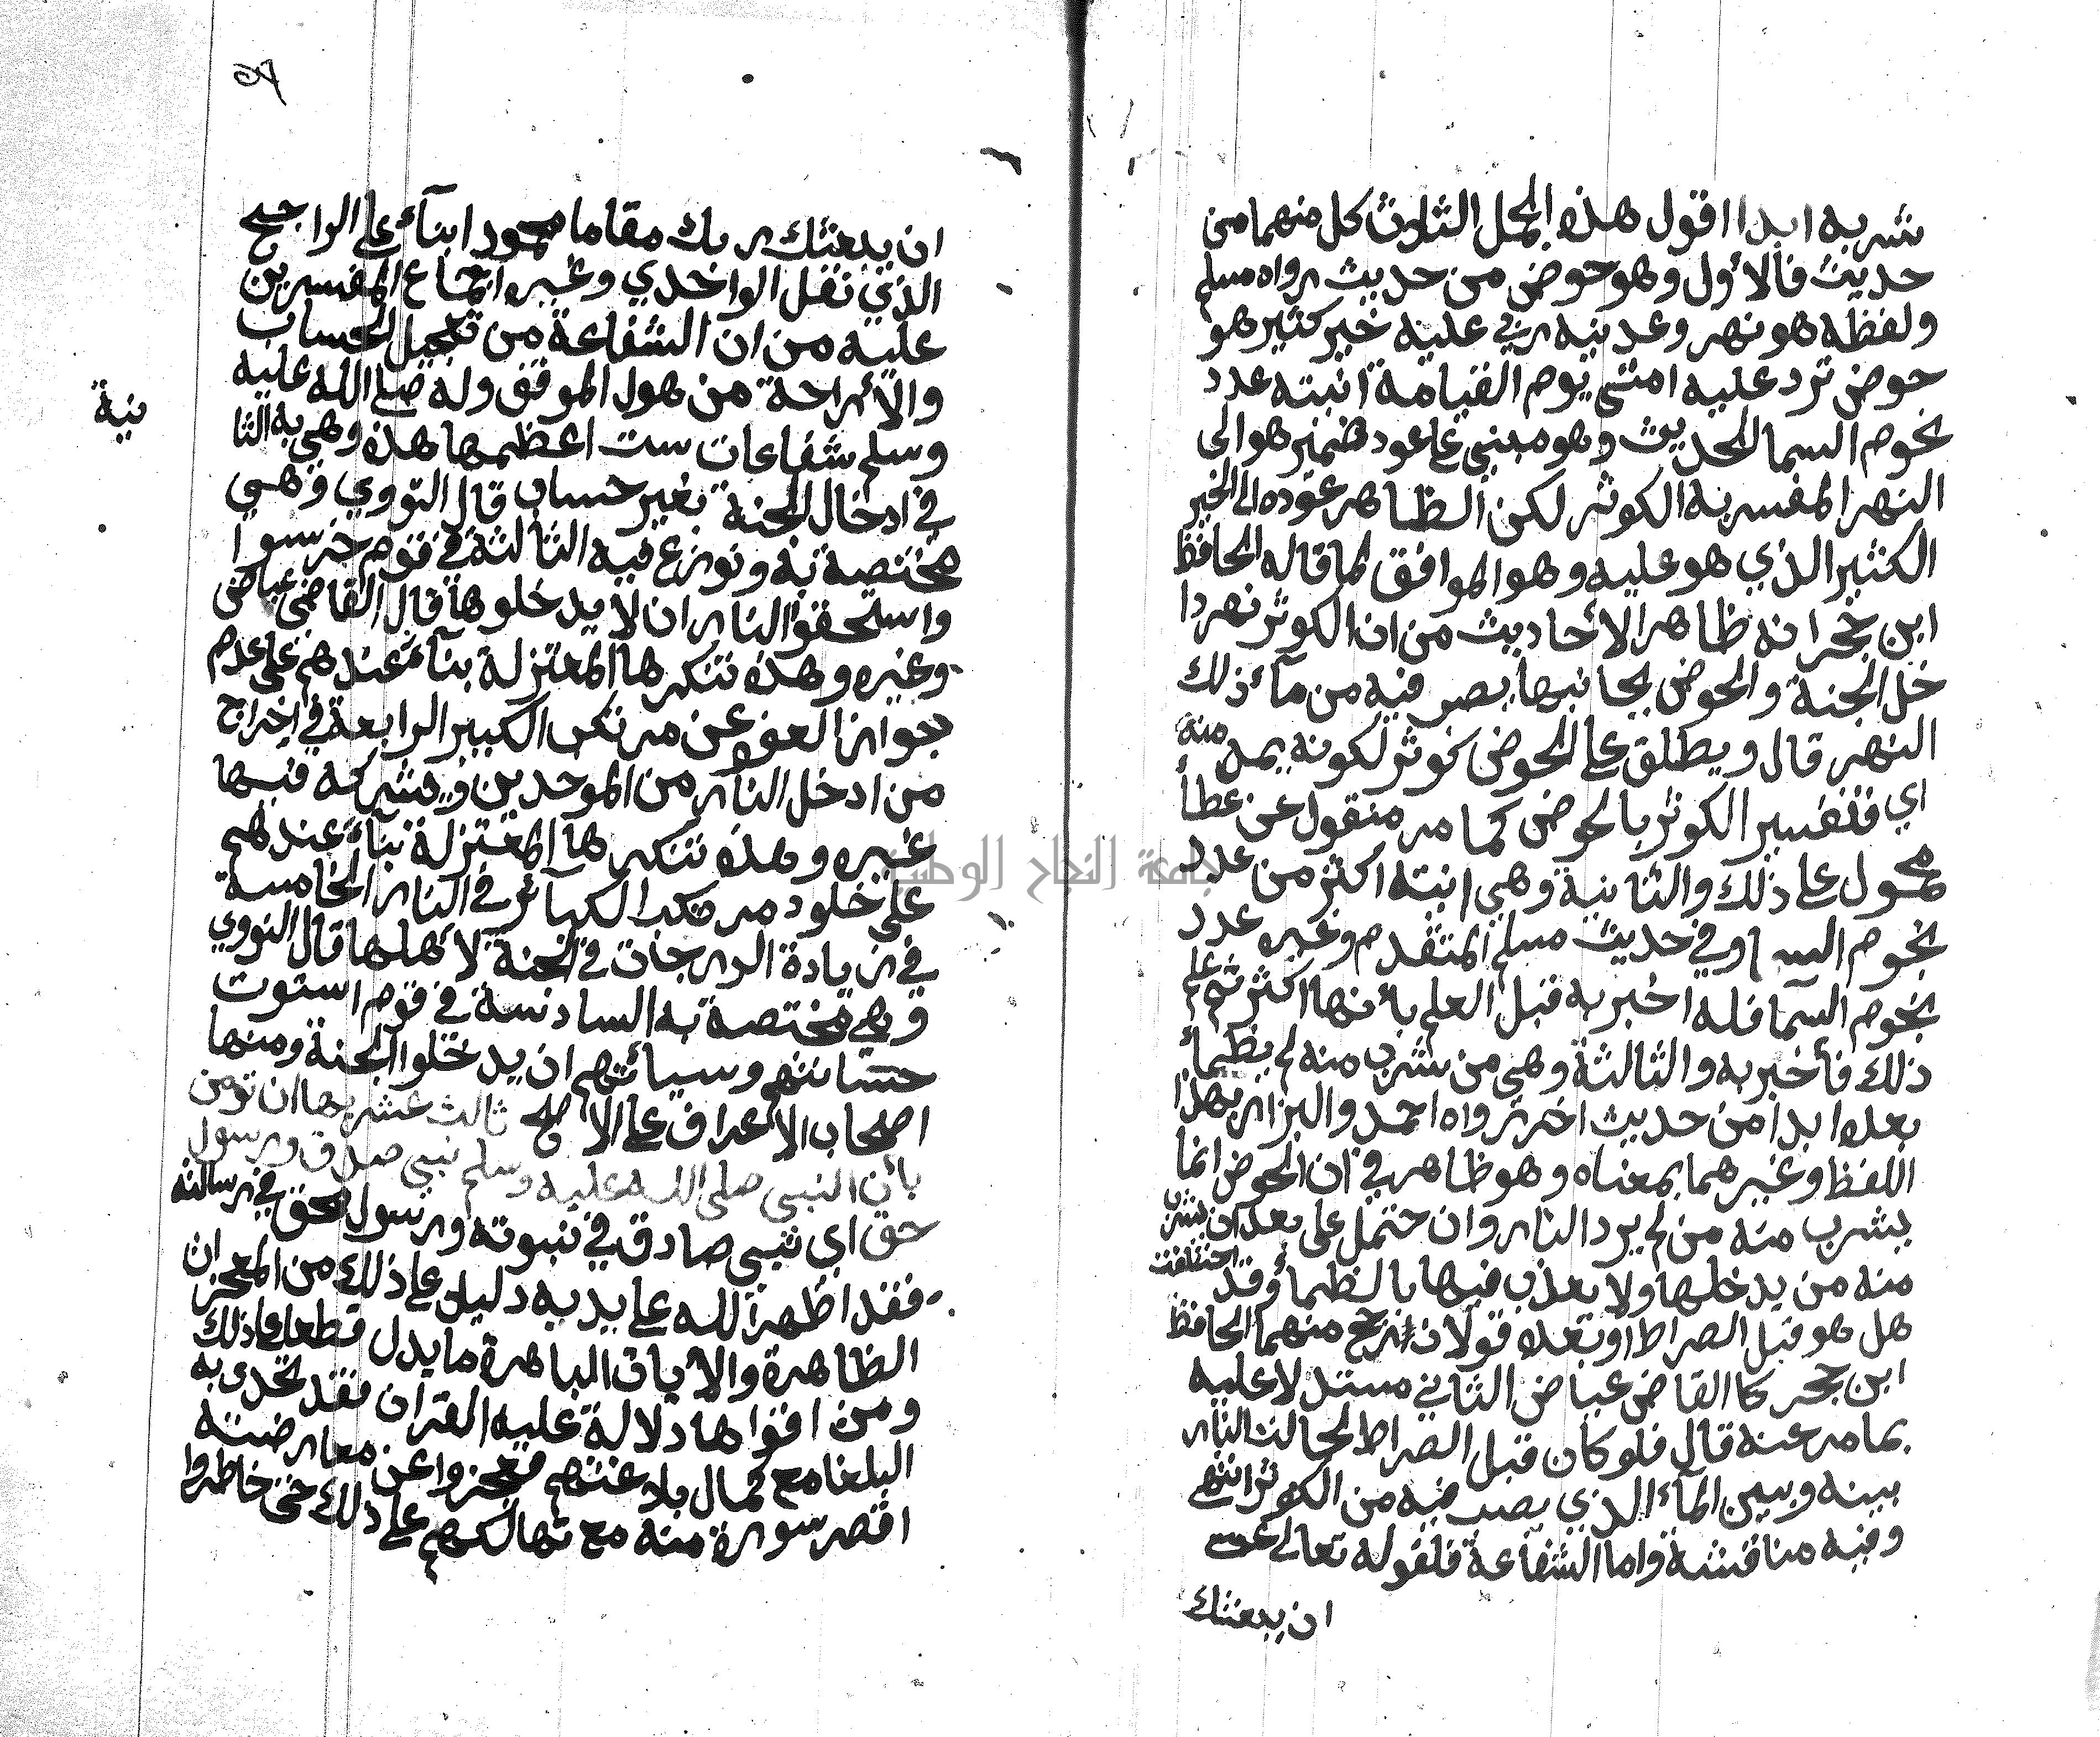 شربه ابدا اقول هذه الجمل الثلاث كل منهما من
حديث فالأول وهو حوض من حديث رواه مسلم
ولفظه هو نهر وعدنيه ربي عليه خير كثير هو
حوض ترد عليه امتي يوم القيامة انيته عدد
نجوم السما الحديث وهو مبني على عود ضمير هو الى
النهر المفسر به الكوثر لكن الظاهر عوده الى الخير
الكثير الذي هو عليه وهو الموافق لما قاله الحافظ
ابن حجر انه ظاهر الأحاديث من ان الكوثر نهر دا
خل الجنة والحوض بجانبها يصب فيه من مآء ذلك
النهر قال ويطلق على الحوض كوثر لكونه يمد منه
اي فتفسير الكوثر بالحوض كما مر منقول عن عطأ
محمول على ذلك والثانية وهي انيته اكثر من عدد
نجوم السما وفي حديث مسلم المتقدم وغيره عدد
نجوم السما فلعله اخبر به قبل العلم بأنها اكثر ثم علم
ذلك فأخبر به والثالثة وهي من شرب منه لم يظمأ
بعده ابدا من حديث اخر رواه احمد والبزار بهذا
اللفظ وغيرهما بمعناه وهو ظاهر في ان الحوض انما
يشرب منه من لم يرد النار وان حتمل على بعد ان يشرب
منه من يدخلها ولا يعذب فيها بالظمأ وقد اختلفت
هل هو قبل الصراط او بعده قولان رجح منهما الحافظ
ابن حجر كالقاضي عياض الثاني مستدلا عليه
بما مر عنه قال فلو كان قبل الصراط لحالت النار
بينه وبين المآء الذي يصب فيه من الكوثر انتهى
وفيه مناقشة واما الشفاعة فلقوله تعالى عسى
ان يبعثك
٥٢
ان يبعثك ربك مقاما محمودا بنآء على الراجح
الذي نقل الواحدي وغيره اجماع المفسرين
عليه من ان الشفاعة من تعجيل الحساب
والأراحة من هول الموقف وله صلى الله عليه
وسلم شفاعات ست اعظمها هذه وهي به الثا
نية
في ادخال الجنة بغير حساب قال النووي وهي
مختصة به ونوزع فيه الثالثة في قوم حوسبوا
واستحقوا النار ان لا يدخلوها قال القاضي عياض
وغيره وهذه تنكرها المعتزلة بنآء عندهم على عدم
جواز العفو عن مرتكب الكبير الرابعة في اخراج
من ادخل النار من الموحدين ويشركه فيها
غيره وهذه تنكرها المعتزلة بنآء عندهم
على خلود مرتكب الكبآئر في النار الخامسة
في زيادة الدرجات في الجنة لأهلها قال النووي
وهي مختصة به السادسة في قوم استوت
حسناتهم وسيأتهم ان يدخلوا الجنة ومنها
اصحاب الأعراف على الاصح ثالث عشريها ان تومن
بان النبي صلى الله عليه وسلم نبي صدق ورسول
حق اي نبي صادق في نبوته ورسول محق في رسالته
فقد اظهر الله على يديه دليل على ذلك من المعجزات
الظاهرة والأيات الباهرة ما يدل قطعا على ذلك
ومن اقواها دلالة عليه القران فقد تحدى به
البلغا مع كمال بلاغتهم فعجزوا عن معارضته
اقصر سورة منه مع تهالكهم على ذلك حتى خاطروا
جامعة النجاح الوطنية